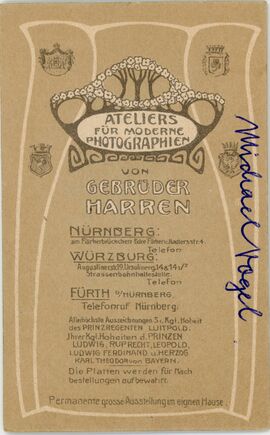 ATELIERS
FÜR MODERNE
PHOTOGRAPHIEN
VON
GEBRÜDER
HARREN
NÜRNBERG:
Telefon
WÜRZBURG:
Strassenbahnhaltestelle.
Telefon
FÜRTH B/NÜRNBERG.
Telefonruf Nürnberg:
Allerhöchste Auszeichnungen S. Kgl. Hoheit
des PRINZREGENTEN LUITPOLD.
Ihrer Kgl. Hoheiten d. PRINZEN
LUDWIG, RUPRECHT, LEOPOLD,
LUDWIG FERDINAND u. HERZOG
KARL THEODOR von BAYERN.
Die Platten werden für Nach
bestellungen aufbewahrt.
Permanente grosse Ausstellung im eignen Hause.
Michael Vogel